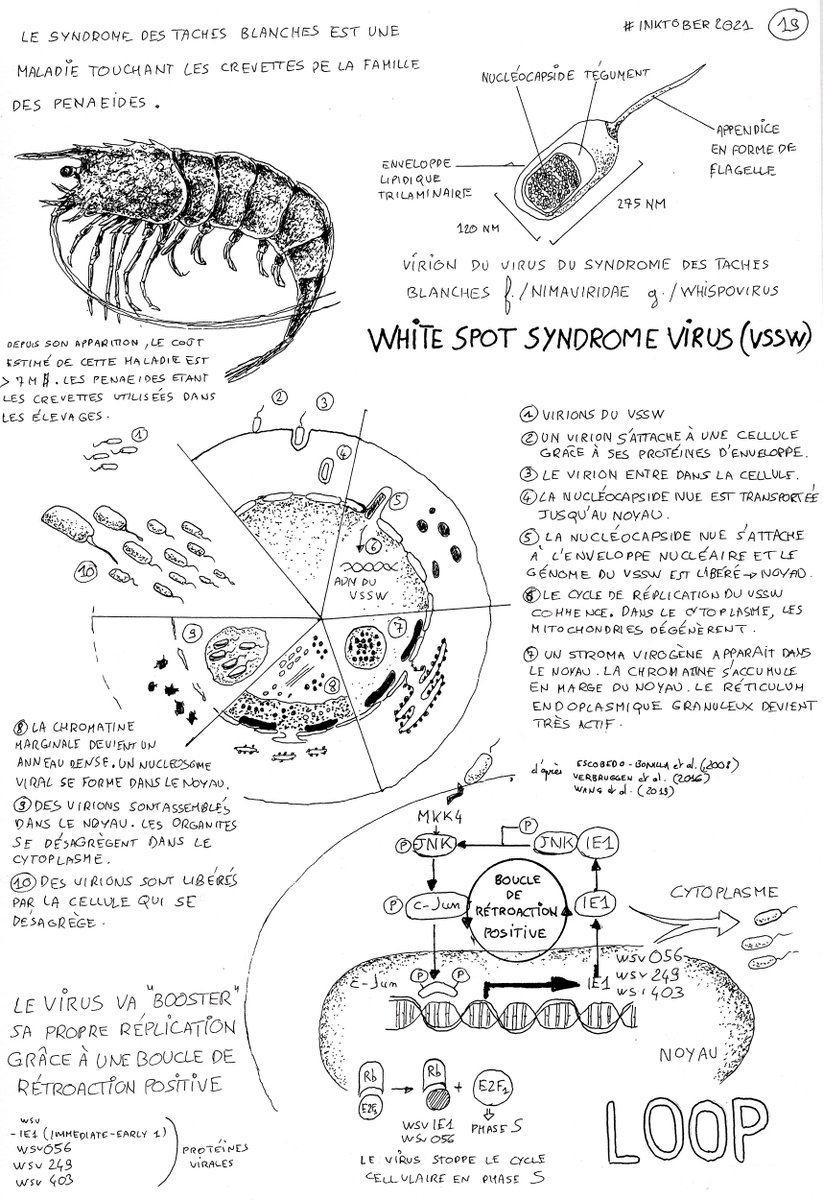 LE SYNDROME DES TACHES BLANCHES EST UNE
MALADIE TOUCHANT LES CREVETTES DE LA FAMILLE
DES PENAEIDES.
#INKTOBER 2021 19
NUCLÉOCAPSIDE TÉGUMENT
APPENDICE
EN FORME DE
FLAGELLE
ENVELOPPE
LIPIDIQUE
TRILAMINAIRE
120 NM
275 NM
VIRION DU VIRUS DU SYNDROME DES TACHES
BLANCHES f./NIMAVIRIDAE g./WHISPOVIRUS
WHITE SPOT SYNDROME VIRUS (VSSW)
DEPUIS SON APPARITION, LE COÛT
ESTIMÉ DE CETTE MALADIE EST
> 7 M $. LES PENAEIDES ETANT
LES CREVETTES UTILISÉES DANS
LES ÉLEVAGES.
1
2
3
4
5
6
ADN DU
VSSW
7
8
9
10
1 VIRIONS DU VSSW
2 UN VIRION S'ATTACHE À UNE CELLULE
GRÂCE À SES PROTÉINES D'ENVELOPPE.
3 LE VIRION ENTRE DANS LA CELLULE.
4 LA NUCLÉOCAPSIDE NUE EST TRANSPORTÉE
JUSQU'AU NOYAU.
5 LA NUCLÉOCAPSIDE NUE S'ATTACHE
À L'ENVELOPPE NUCLÉAIRE ET LE
GÉNOME DU VSSW EST LIBÉRÉ → NOYAU.
6 LE CYCLE DE RÉPLICATION DU VSSW
COMMENCE. DANS LE CYTOPLASME, LES
MITOCHONDRIES DÉGÉNÈRENT.
7 UN STROMA VIROGÈNE APPARAIT DANS
LE NOYAU. LA CHROMATINE S'ACCUMULE
EN MARGE DU NOYAU. LE RÉTICULUM
ENDOPLASMIQUE GRANULEUX DEVIENT
TRÈS ACTIF.
8 LA CHROMATINE
MARGINALE DEVIENT UN
ANNEAU DENSE. UN NUCLEOSOME
VIRAL SE FORME DANS LE NOYAU.
9 DES VIRIONS SONT ASSEMBLÉS
DANS LE NOYAU. LES ORGANITES
SE DÉSAGRÈGENT DANS LE
CYTOPLASME.
10 DES VIRIONS SONT LIBÉRÉS
PAR LA CELLULE QUI SE
DÉSAGRÈGE.
d'après ESCOBEDO-BONILLA et al. (2008)
VERBRUGGEN et al. (2016)
WANG et al. (2019)
MKK4
P JNK
P
JNK IE1
P C-Jun
BOUCLE
DE
RÉTROACTION
POSITIVE
IE1
CYTOPLASME
C-Jun
P P
IE1
wsv 056
wsv 249
wsv 403
NOYAU
LE VIRUS VA "BOOSTER"
SA PROPRE RÉPLICATION
GRÂCE À UNE BOUCLE DE
RÉTROACTION POSITIVE
wsv
- IE1 (IMMEDIATE-EARLY 1)
wsv 056
wsv 249
wsv 403
PROTÉINES
VIRALES
Rb
E2F1
Rb
+
E2F1
wsv IE1
wsv 056
PHASE S
LE VIRUS STOPPE LE CYCLE
CELLULAIRE EN PHASE S
LOOP